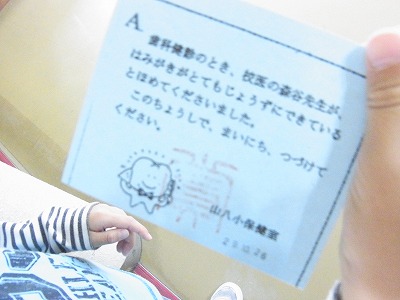 A.
歯科健診のとき、校医の森谷先生が、
はみがきがとてもじょうずにできている
とほめてくださいました。
このちょうしで、まいにち、つづけて
ください。
山八小保健室